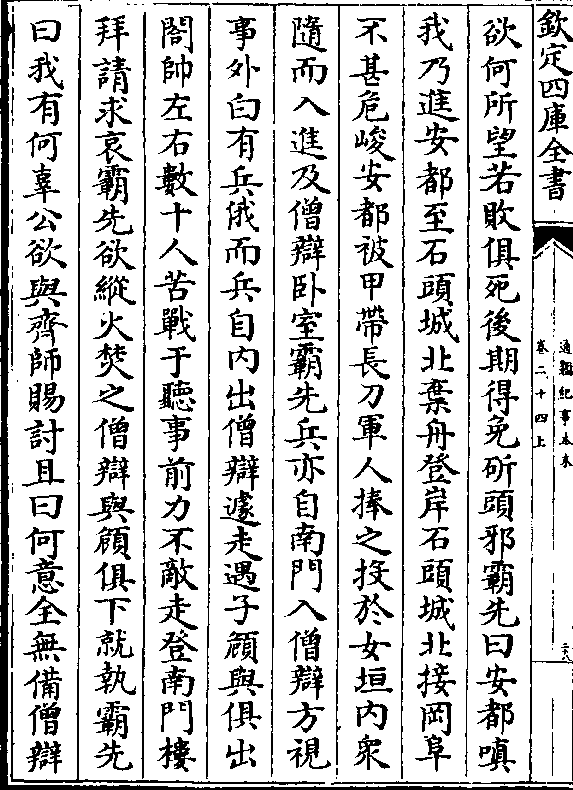 欽定四庫全書
通鑑紀事本末
卷二十四上
欲何所望若敗俱死後期得免斫頭邪霸先曰安都嗔
我乃進安都至石頭城北棄舟登岸石頭城北接岡阜
不甚危峻安都被甲帶長刀軍人捧之投於女垣内衆
隨而入進及僧辯卧室霸先兵亦自南門入僧辯方視
事外白有兵俄而兵自内出僧辯遽走遇子頠與俱出
閤帥左右數十人苦戰于聽事前力不敵走登南門樓
拜請求哀霸先欲縱火焚之僧辯與頠俱下就執霸先
曰我有何辜公欲與齊師賜討且曰何意全無備僧辯